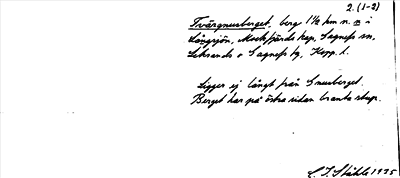 2. (1-2)
Tvärgnusberget, berg 1½ km n. n i
Långsjön, Mockfjärds kap, Gagnefs sn,
Leksands o Gagnefs tg, Kopp. l.
Ligger ej långt från Snusberget.
Berget har på östra sidan branta stup.
E. I. Ståhle 1935